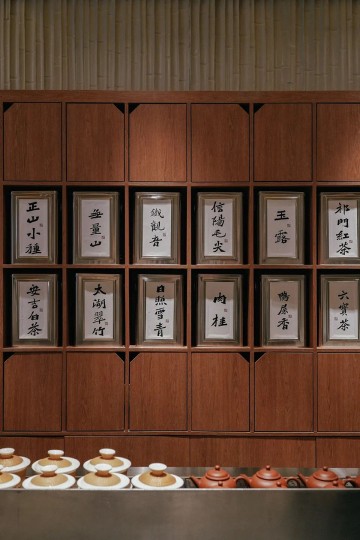 正山小種
無量山
鐵觀音
信陽毛尖
玉露
祁門紅茶
安吉白茶
太湖翠竹
日照雪青
肉桂
鴨屎香
六寶茶